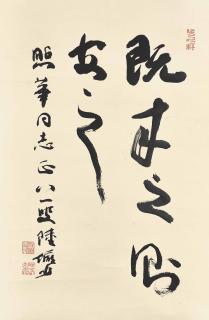 既来之则
安之
照华同志正 八一叟陆俨少